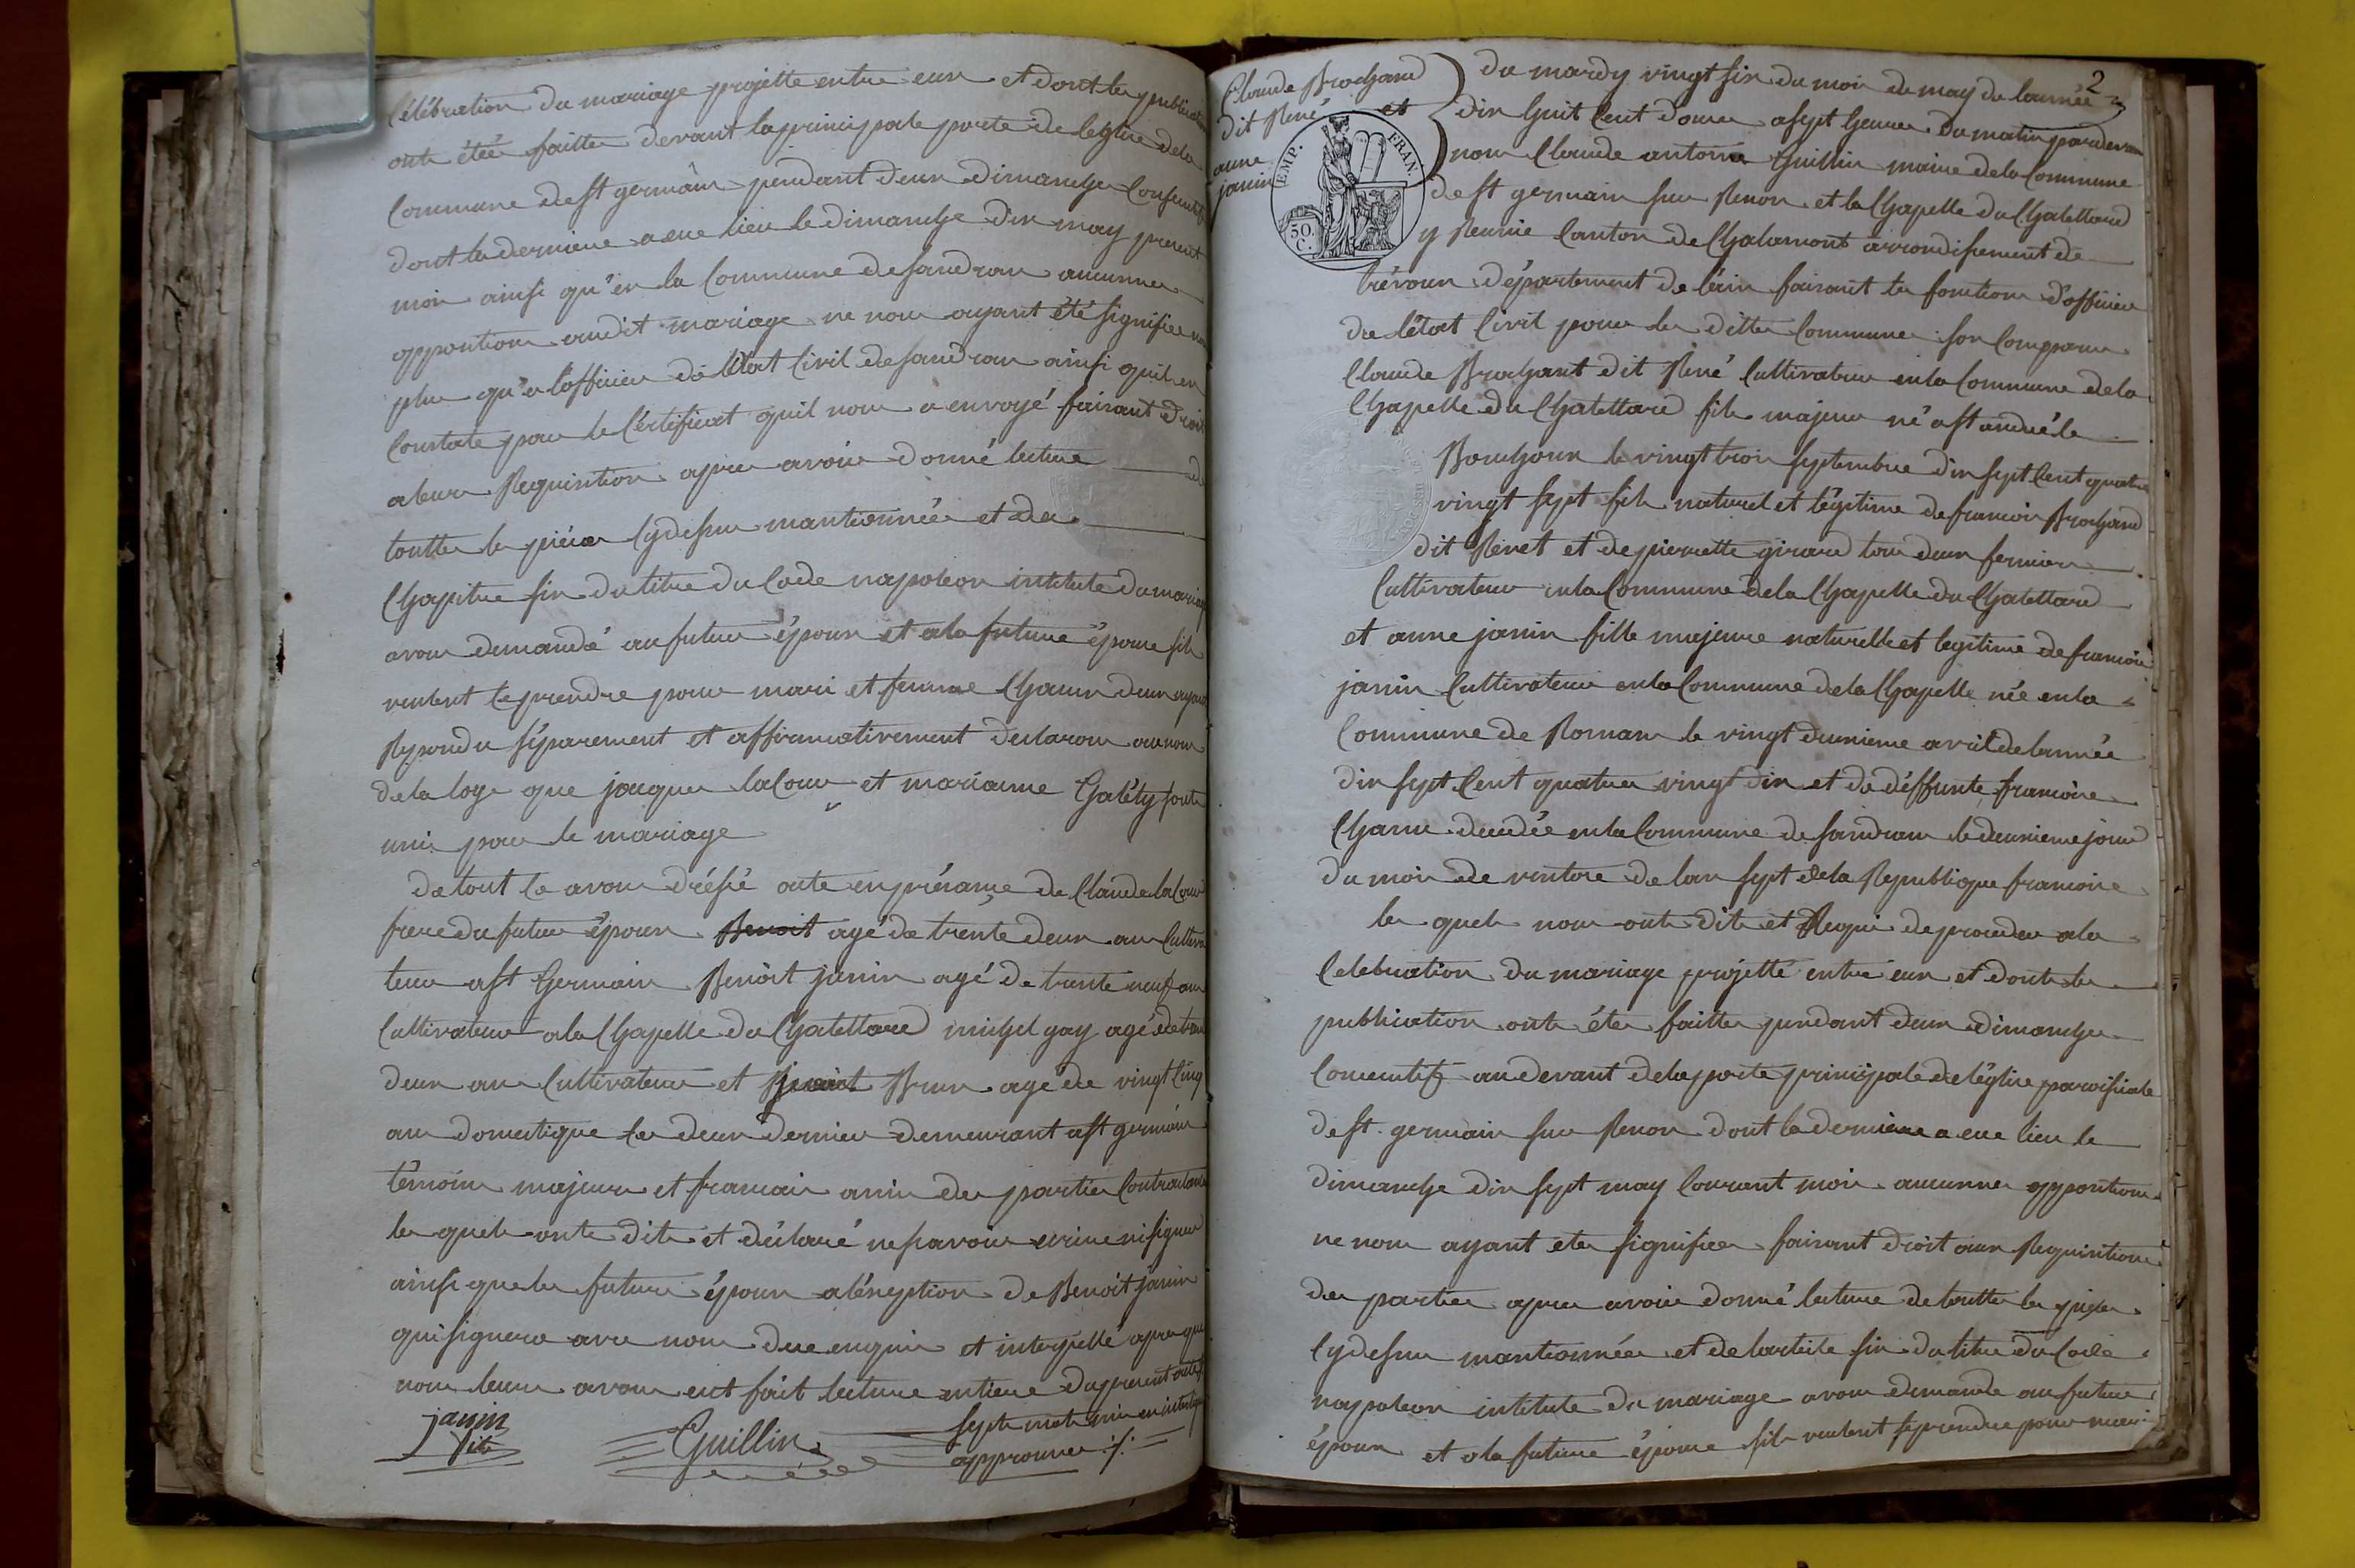 Célébration du mariage projette entre eux et dont les publications
ont étée faittes devant la principale porte de leglise de la
Commune de st germain pendant deux dimanches Consecutifs
dont la derniere a eue lieu le dimanche dix may present
mois ainsi qu'en la Commune de sandrans aucunnes
oppositions audit mariage ne nous ayant été signifiées non
plus qu'a l'officier de létat Civil de sandrans ainsi quil en
Constate par le Certificat quil nous a envoyé faisant droit
a leurs Requisition apres avoir donné lecture de
touttes les pieces Cydessus mantionnées et du
Chapitre six du titre du Code napoleon intitulé du mariage
avons demandé au futur époux et a la future épouse sils
veulent se prendre pour mari et femme Chacun deux ayant
Repondu séparement et affirmativement declarons au nom
de la loye que jacques laCour et marianne Galéty sont
unis par le mariage
de tout Ce avons dréssé acte en présance de Claude laCour
frere du futur époux Benoit agé de trente deux ans Cultiva
teur a st Germain Benoit janin agé de trente neuf ans
Cultivateur a la Chapelle du Chatellard michel gay agé de trente
deux ans Cultivateur et Benoit Brun agé de vingt Cinq
ans domestique les deux dernier demeurant a st germain
témoins majeurs et francais amis des parties Contractantes
les quels onts dits et déclaré ne savoir écrire ni signer
ainsi que les futurs époux a léxception de Benoit janin
qui signera avec nous due enquis et interpellé apres que
nous leurs avons eut fait lecture entiere du present acte
janin
Guillin
sept mots mis en interligne
approuvés ./.
2
Claude Brochand
dit René et
anne
janin
EMP. FRAN.
50.
C.
du mardy vingt six du mois de may de lannée
dix huit Cent douze a sept heures du matin pardevant
nous Claude antoine Guillin maire de la Commune
de st germain sur Renon et la Chapelle du Chatellard
y Reunie Canton de Chalamont arrondissement de
trévoux département de léain faisant les fonctions d'officier
de létat Civil pour les dittes Communes son Comparus
Claude Brochant dit René Cultivateur en la Commune de la
Chapelle du Chatellard fils majeur né a st andré le
Bouchoux le vingt trois septembre dix sept Cent quatre
vingt sept fils naturel et légitime de francois Brochand
dit Renet et de pierrette girard tous deux fermiers
Cultivateurs en la Commune de la Chapelle du Chatellard
et anne janin fille majeure naturelle et legitime de francois
janin Cultivateur en la Commune de la Chapelle née en la
Commune de Romans le vingt deuxieme avril de lannée
dix sept Cent quatre vingt dix et de déffunte francoise
Charve decedée en la Commune de sandrans le deuxieme jour
du mois de ventose de lan sept de la Republique francoise
les quels nous onts dits et Requis de proceder a la
Celebration du mariage projetté entre eux et dont les
publication onts étés faittes pendant deux dimanches
Consecutifs au devant de la porte principale de léglise paroissiale
de st. germain sur Renon dont la derniere a eue lieu le
dimanche dix sept may Courant mois aucunnes oppositions
ne nous ayant etes signifiées faisant droit aux Requisitions
des parties apres avoir donné lecture de touttes les pieces
Cydessus mantionnées et de larticle six du titre du Code
napoleon intitulé du mariage avons demande au futur
époux et a la future épouse sils veulent se prendre pour mari